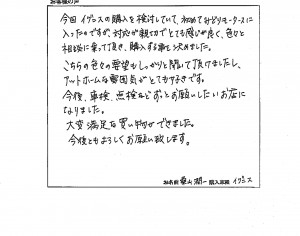 お客様の声
今回イグニスの購入を検討していて、初めてみどりモータースに
入ったのですが、対応が親切でとても感じが良く、色々と
相談に乗って頂き、購入する事を決めました。
こちらの色々な要望もしっかりと聞いて頂けましたし、
アットホームな雰囲気がとても好きです。
今後、車検、点検などずっとお願いしたいお店に
なりました。
大変満足な買い物ができました。
今後ともよろしくお願い致します。
お名前 桑山潤一 購入車種 イグニス